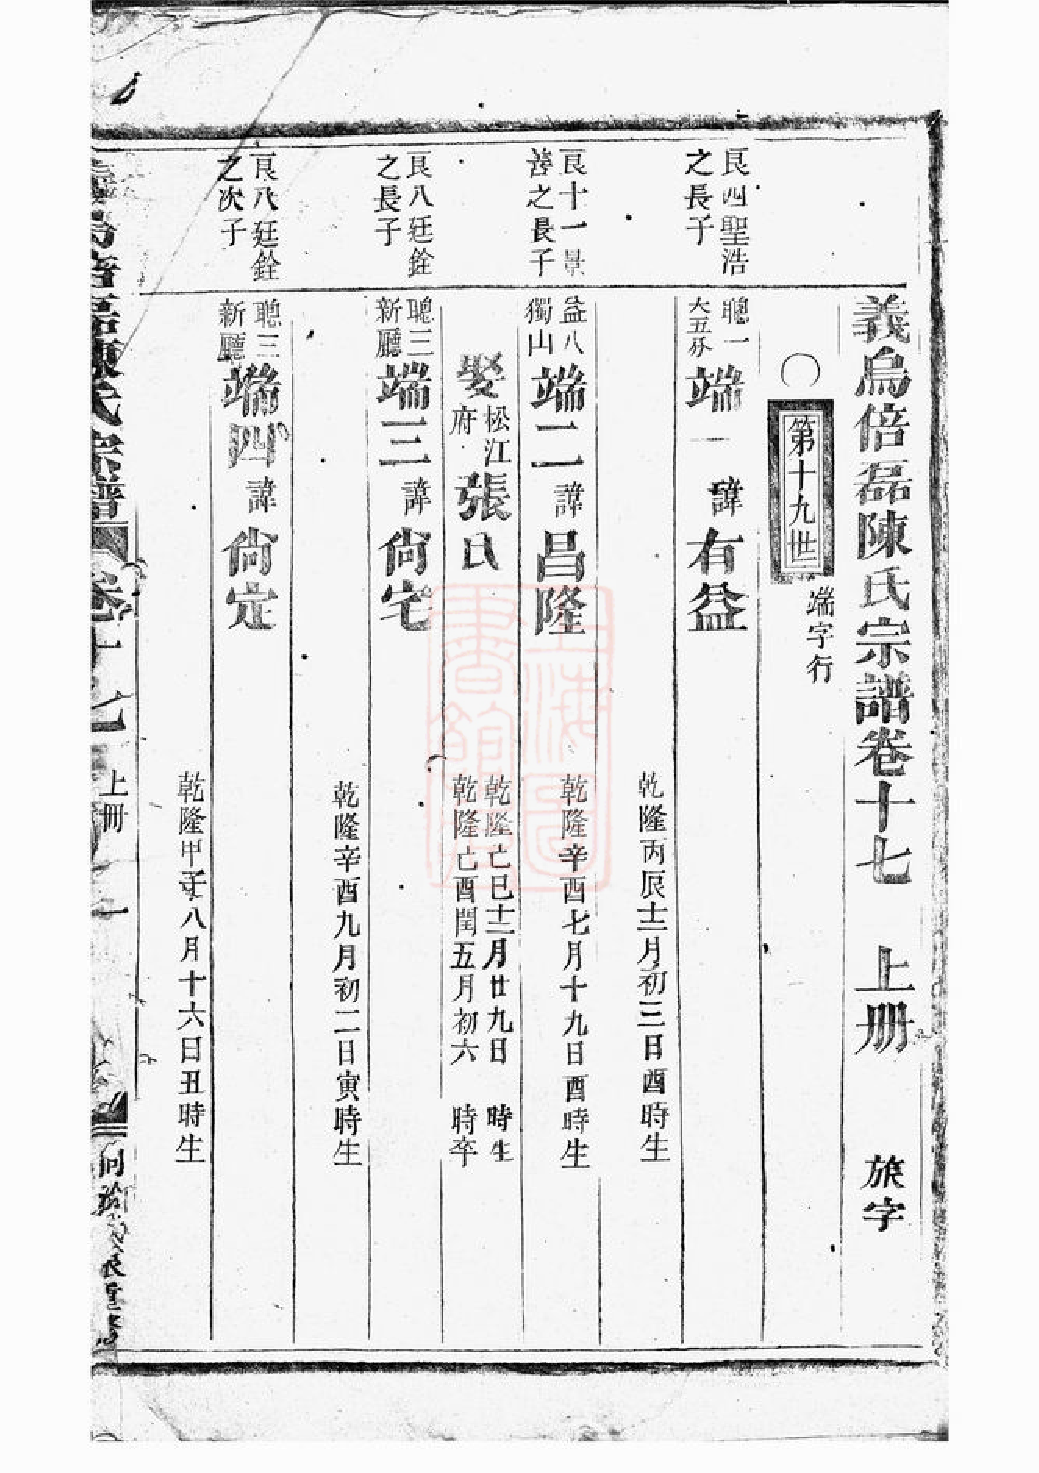 義烏倍磊陳氏宗譜卷十七 上册 旅字
第十九世
端字行
艮四聖浩
之長子
聰一
大五房
端一 諱 有益
乾隆丙辰十二月初三日酉時生
艮十一景
善之長子
益八
獨山
端二 諱 昌隆
乾隆辛酉七月十九日酉時生
娶 松江
府 張氏
乾隆乙巳十二月廿九日 時生
乾隆乙酉閏五月初六 時卒
艮八廷銓
之長子
聰三
新廳
端三 諱 尙宅
乾隆辛酉九月初二日寅時生
艮八廷銓
之次子
聰三
新廳
端四 諱 尙定
乾隆甲子八月十六日丑時生
義烏倍磊陳氏宗譜 卷十七 上册 一
重修